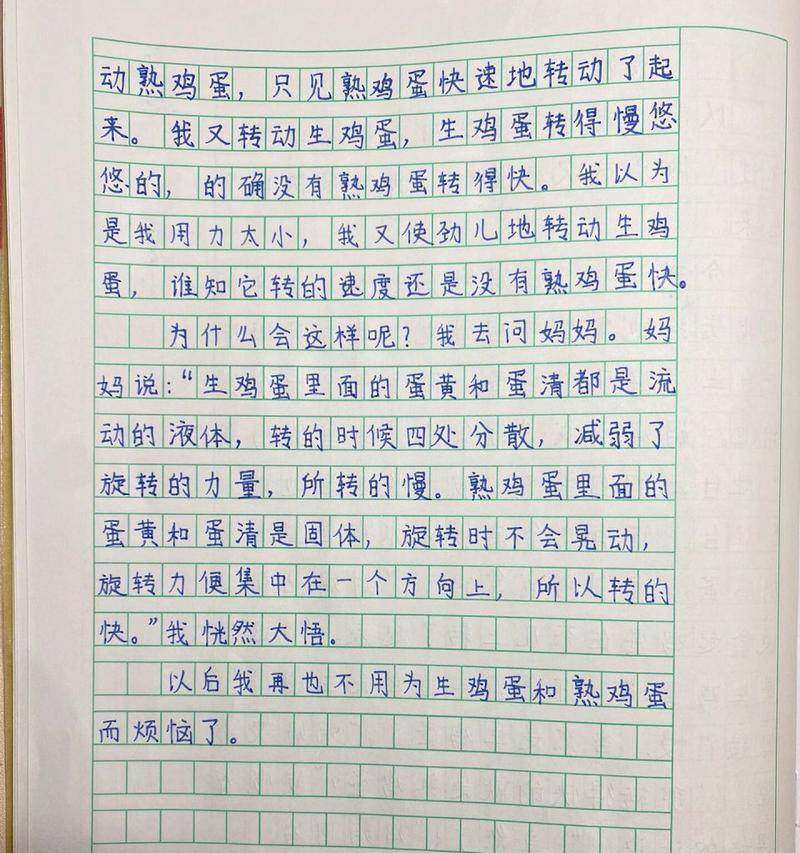 动熟鸡蛋，只见熟鸡蛋快速地转动了起
来。我又转动生鸡蛋，生鸡蛋转得慢悠
悠的，的确没有熟鸡蛋转得快。我以为
是我用力太小，我又使劲儿地转动生鸡
蛋，谁知它转的速度还是没有熟鸡蛋快。
为什么会这样呢？我去问妈妈。妈
妈说：“生鸡蛋里面的蛋黄和蛋清都是流
动的液体，转的时候四处分散，减弱了
旋转的力量，所转的慢。熟鸡蛋里面的
蛋黄和蛋清是固体，旋转时不会晃动，
旋转力便集中在一个方向上，所以转的
快。”我恍然大悟。
以后我再也不用为生鸡蛋和熟鸡蛋
而烦恼了。